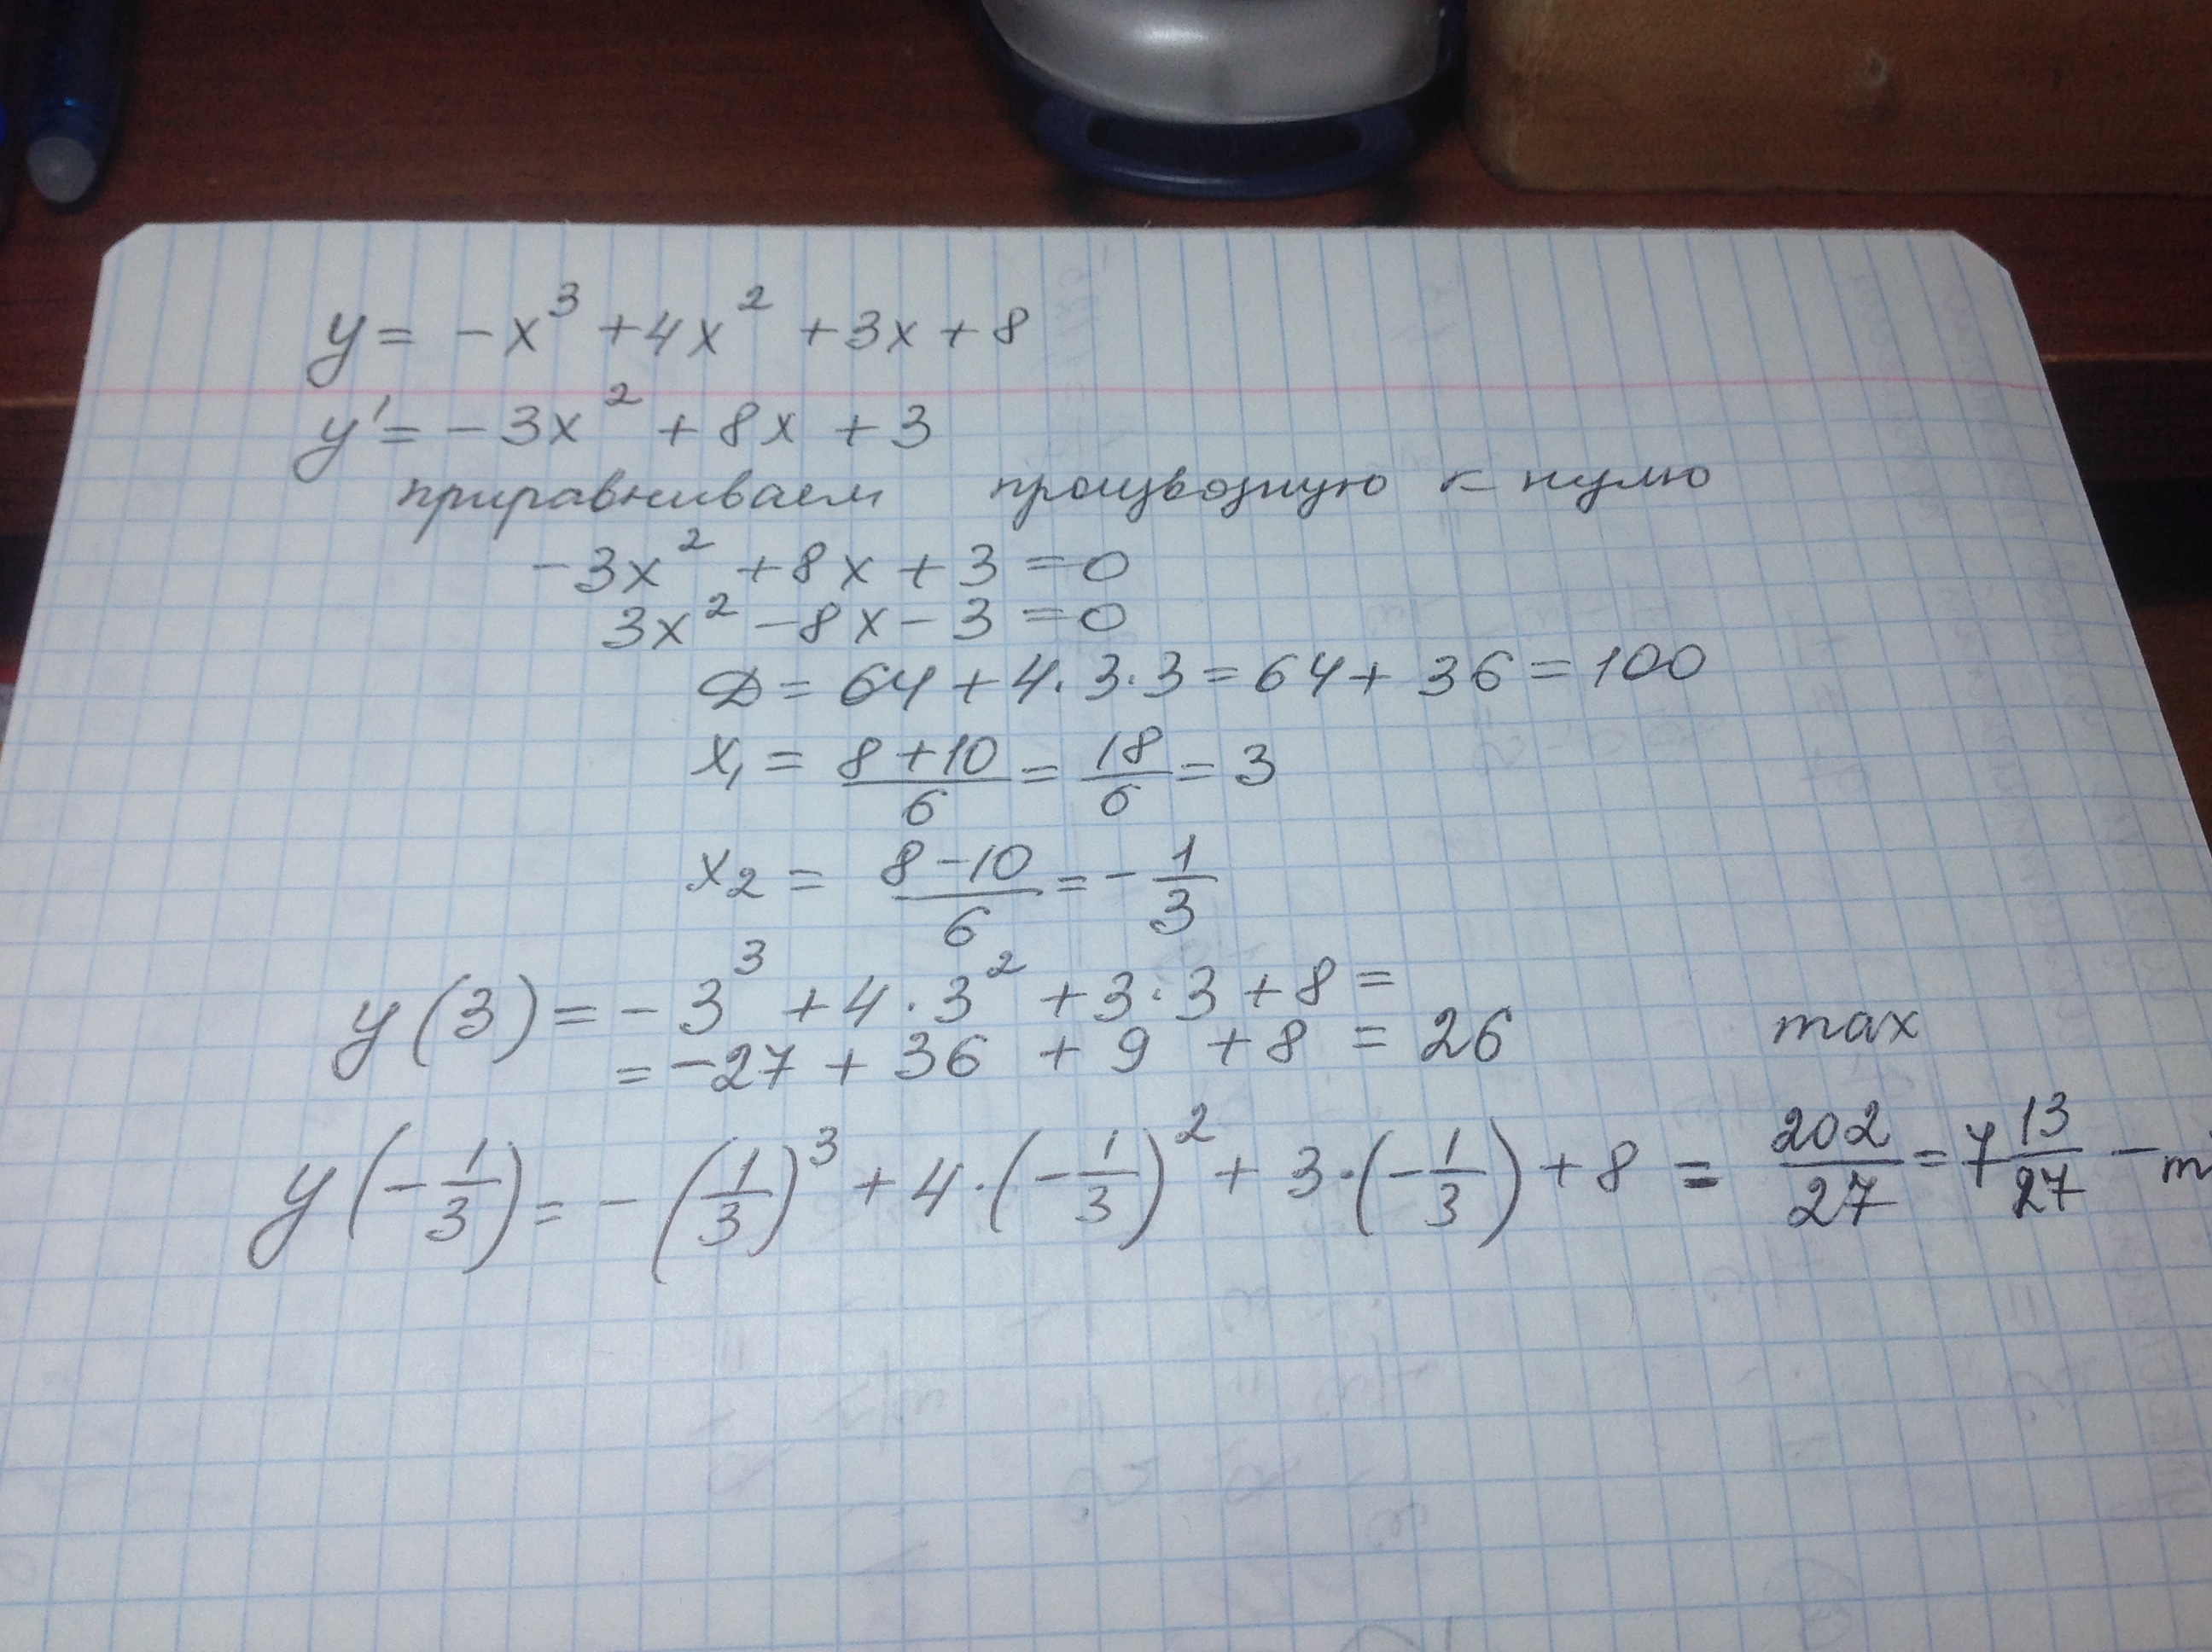 y = -x³ + 4x² + 3x + 8
y' = -3x² + 8x + 3
приравниваем производную к нулю
-3x² + 8x + 3 = 0
3x² - 8x - 3 = 0
D = 64 + 4·3·3 = 64 + 36 = 100
x₁ = (8+10)/6 = 18/6 = 3
x₂ = (8-10)/6 = -1/3
y(3) = -3³ + 4·3² + 3·3 + 8 =
= -27 + 36 + 9 + 8 = 26 max
y(-1/3) = -(1/3)³ + 4·(-1/3)² + 3·(-1/3) + 8 = 202/27 = 7 13/27 -